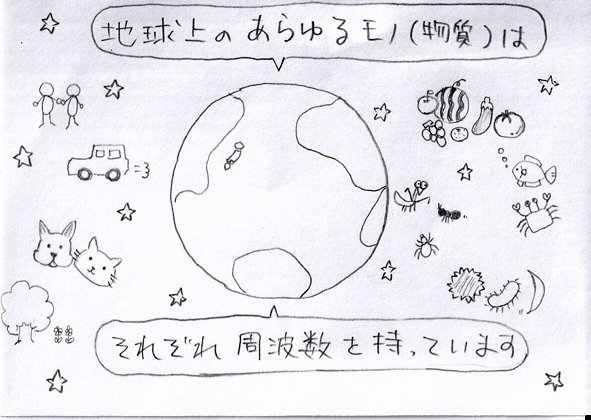 地球上のあらゆるモノ(物質)は
それぞれ周波数を持っています